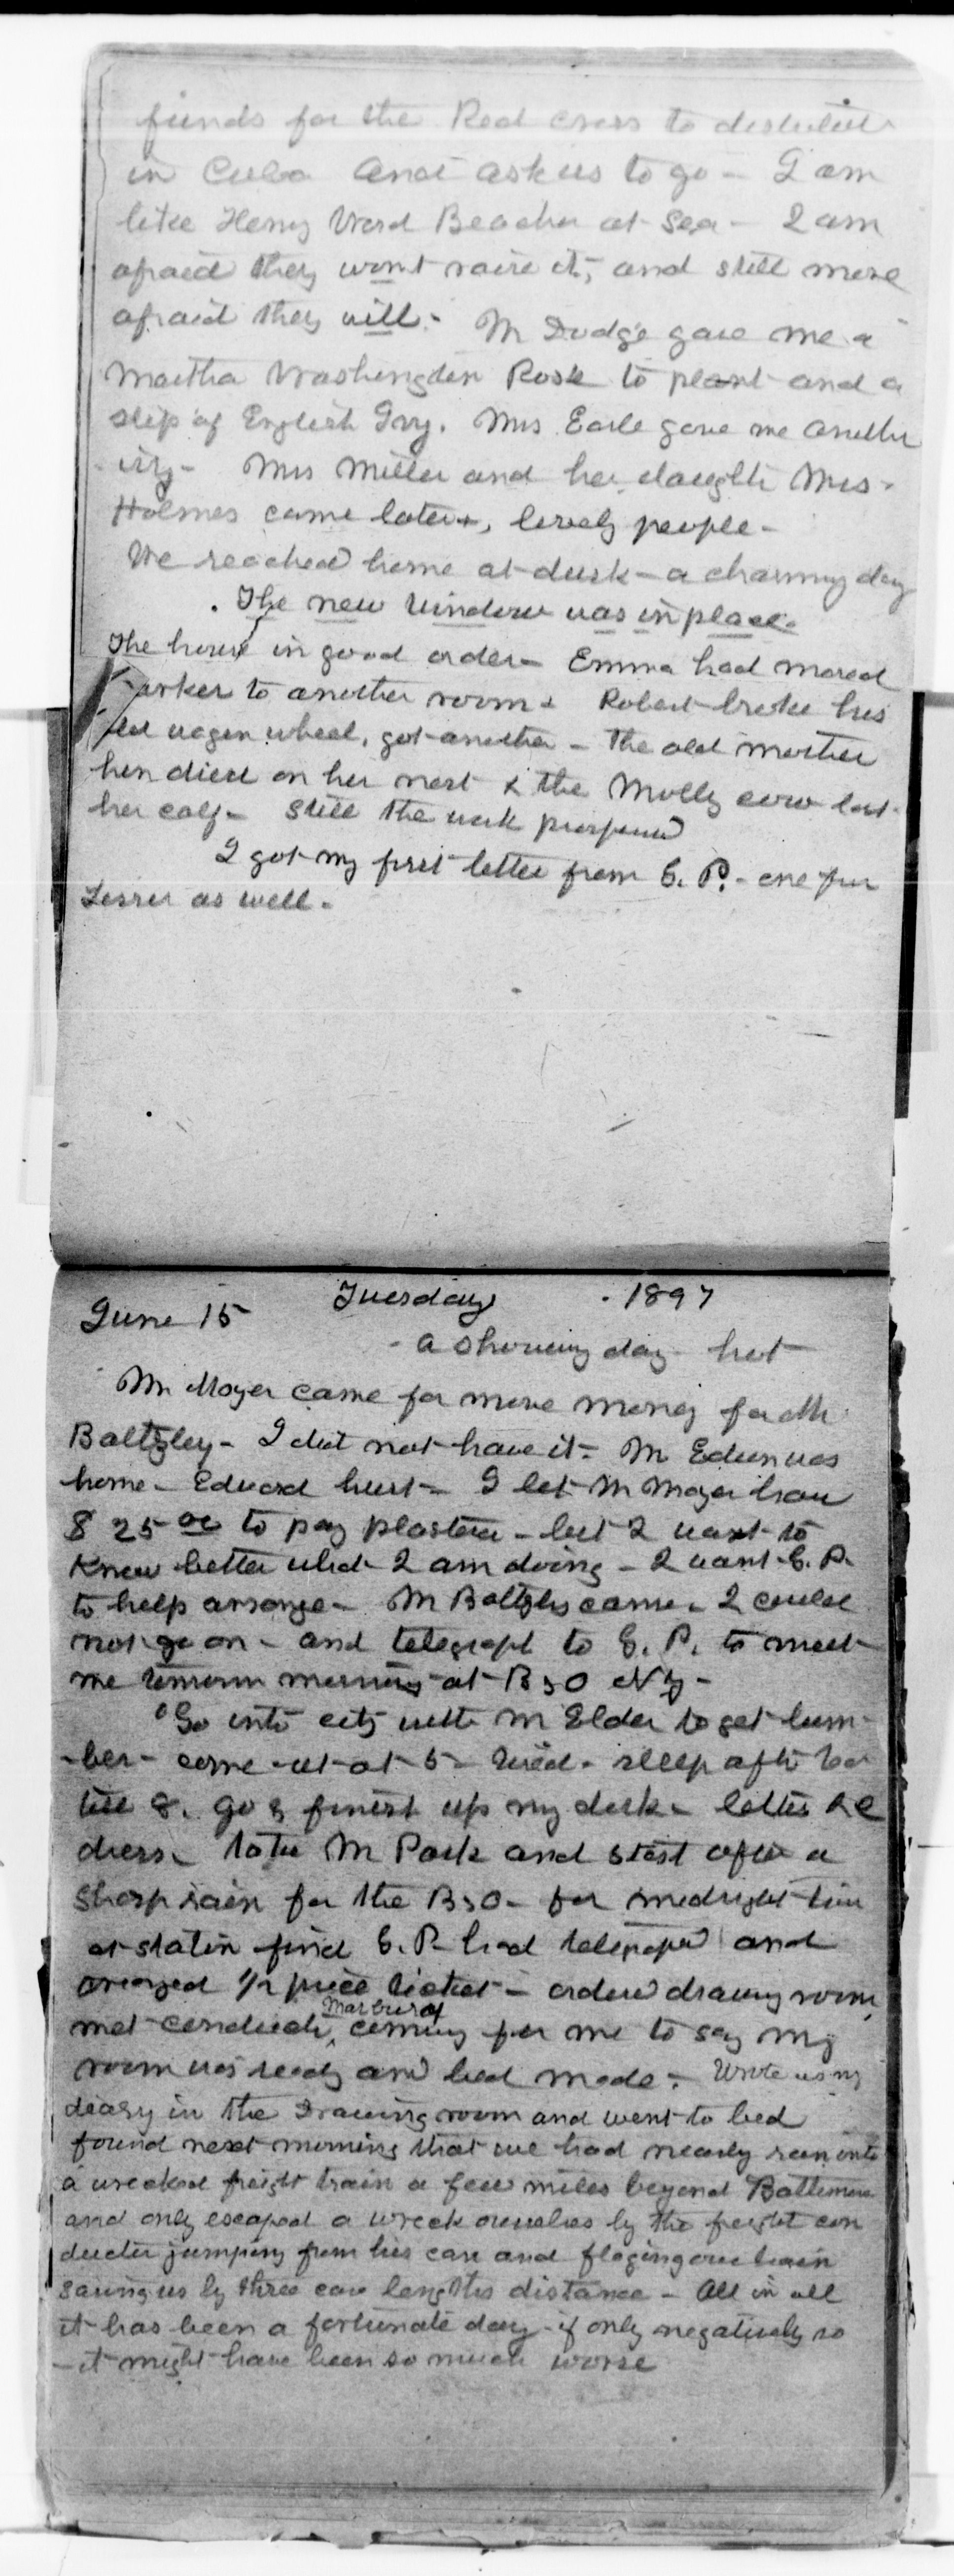 funds for the Red Cross to distribute
in Cuba and ask us to go - I am
like Henry Ward Beecher at sea - I am
afraid they wont raise it, and still more
afraid they will - Mr Dodge gave me a
Martha Washington Rose to plant and a
slip of English Ivy. Mrs Earle gave me another
ivy - Mrs Miller and her daughter Mrs -
Holmes came later, lovely people -
We reached home at dusk - a charming day
The new window was in place.
The house in good order - Emma had moved
to another room & Robert broke his
wagon wheel, got another - The old mother
hen died on her nest & the Molly cow lost
her calf - Still the work prospered
I got my first letter from E. P. - one for
Lesser as well -
June 15 Tuesday 1897
- a showery day - hot
Mr Moyer came for more money for Mr
Baltzley - I did not have it - Mr Edwin was
home - Edward hurt - I let Mr Moyer have
$25 00 to pay plasterer - but I want to
know better what I am doing - I want E. P.
to help arrange - Mr Baltzley came - I could
not go on - and telegraph to E. P. to meet
me tomorrow morning at B & O N Y -
Go into city with Mr Elder to get lum-
-ber - come out at 5 - tired - sleep after tea
till 8. go & finish up my desk - letters &c
dress - take Mr Park and start after a
sharp rain for the B & O - for midnight train
at station find E. P. had telegraphed and
arranged 1/2 price ticket - ordered drawing room,
met conductor Marbury coming for me to say my
room was ready and bed made - Wrote up my
diary in the Drawing room and went to bed
found next morning that we had nearly run into
a wrecked freight train a few miles beyond Baltimore
and only escaped a wreck ourselves by the freight con
ductor jumping from his car and flaging our train
saving us by three car lengths distance - All in all
it has been a fortunate day - if only negatively so
- it might have been so much worse